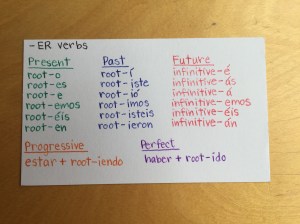 -ER verbs
Present Past Future
root-o root-í infinitive-é
root-es root-iste infinitive-ás
root-e root-ió infinitive-á
root-emos root-imos infinitive-emos
root-éis root-isteis infinitive-éis
root-en root-ieron infinitive-án
Progressive Perfect
estar + root-iendo haber + root-ido